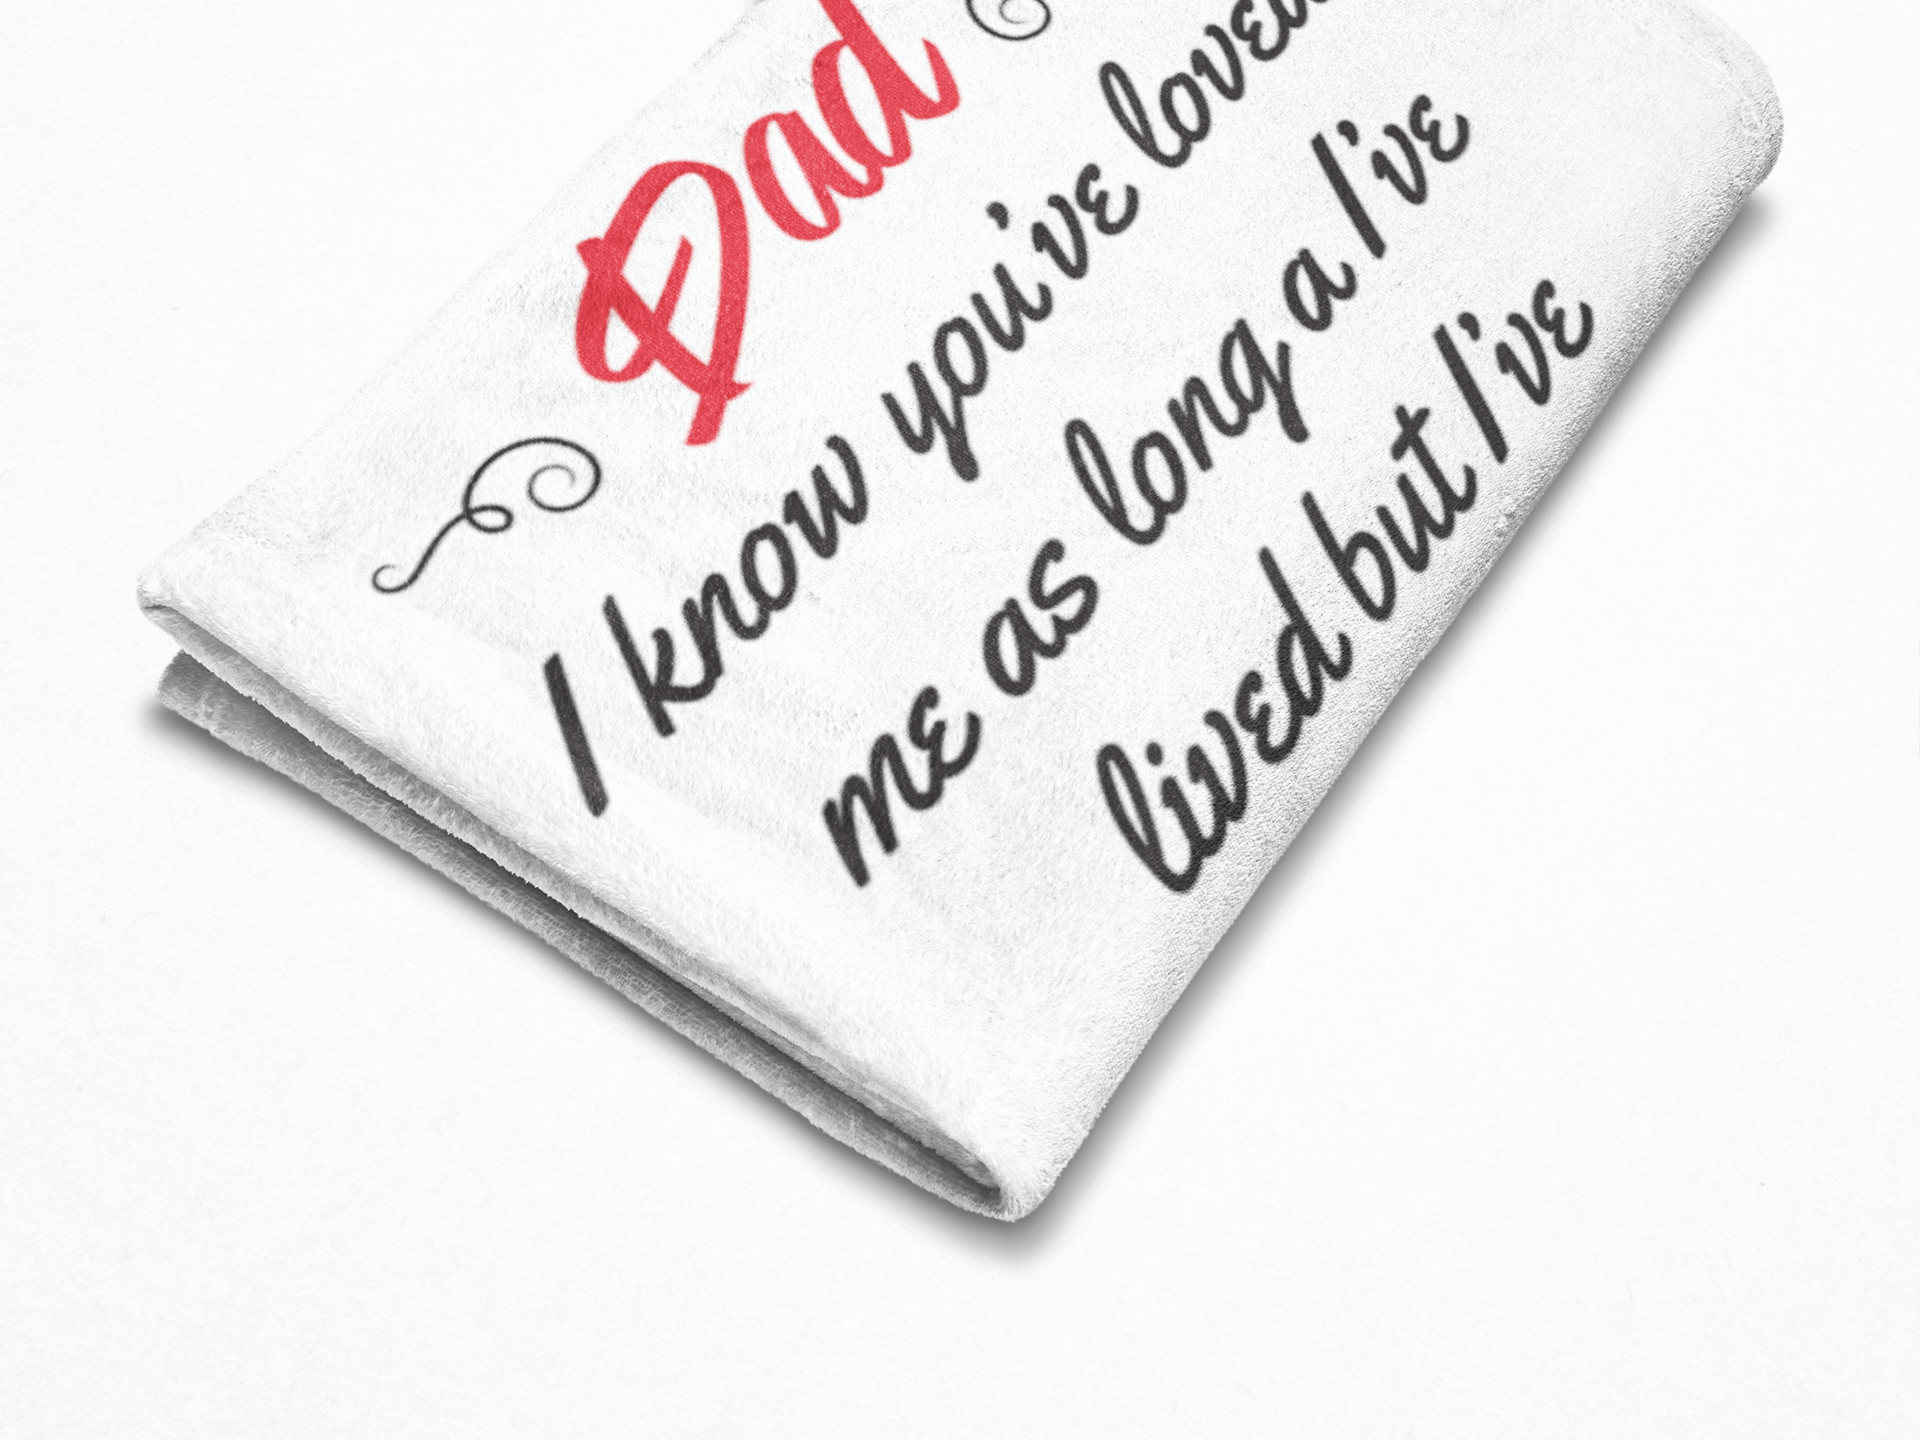 Dad
I know you've loved
me as long a I've
lived but I've